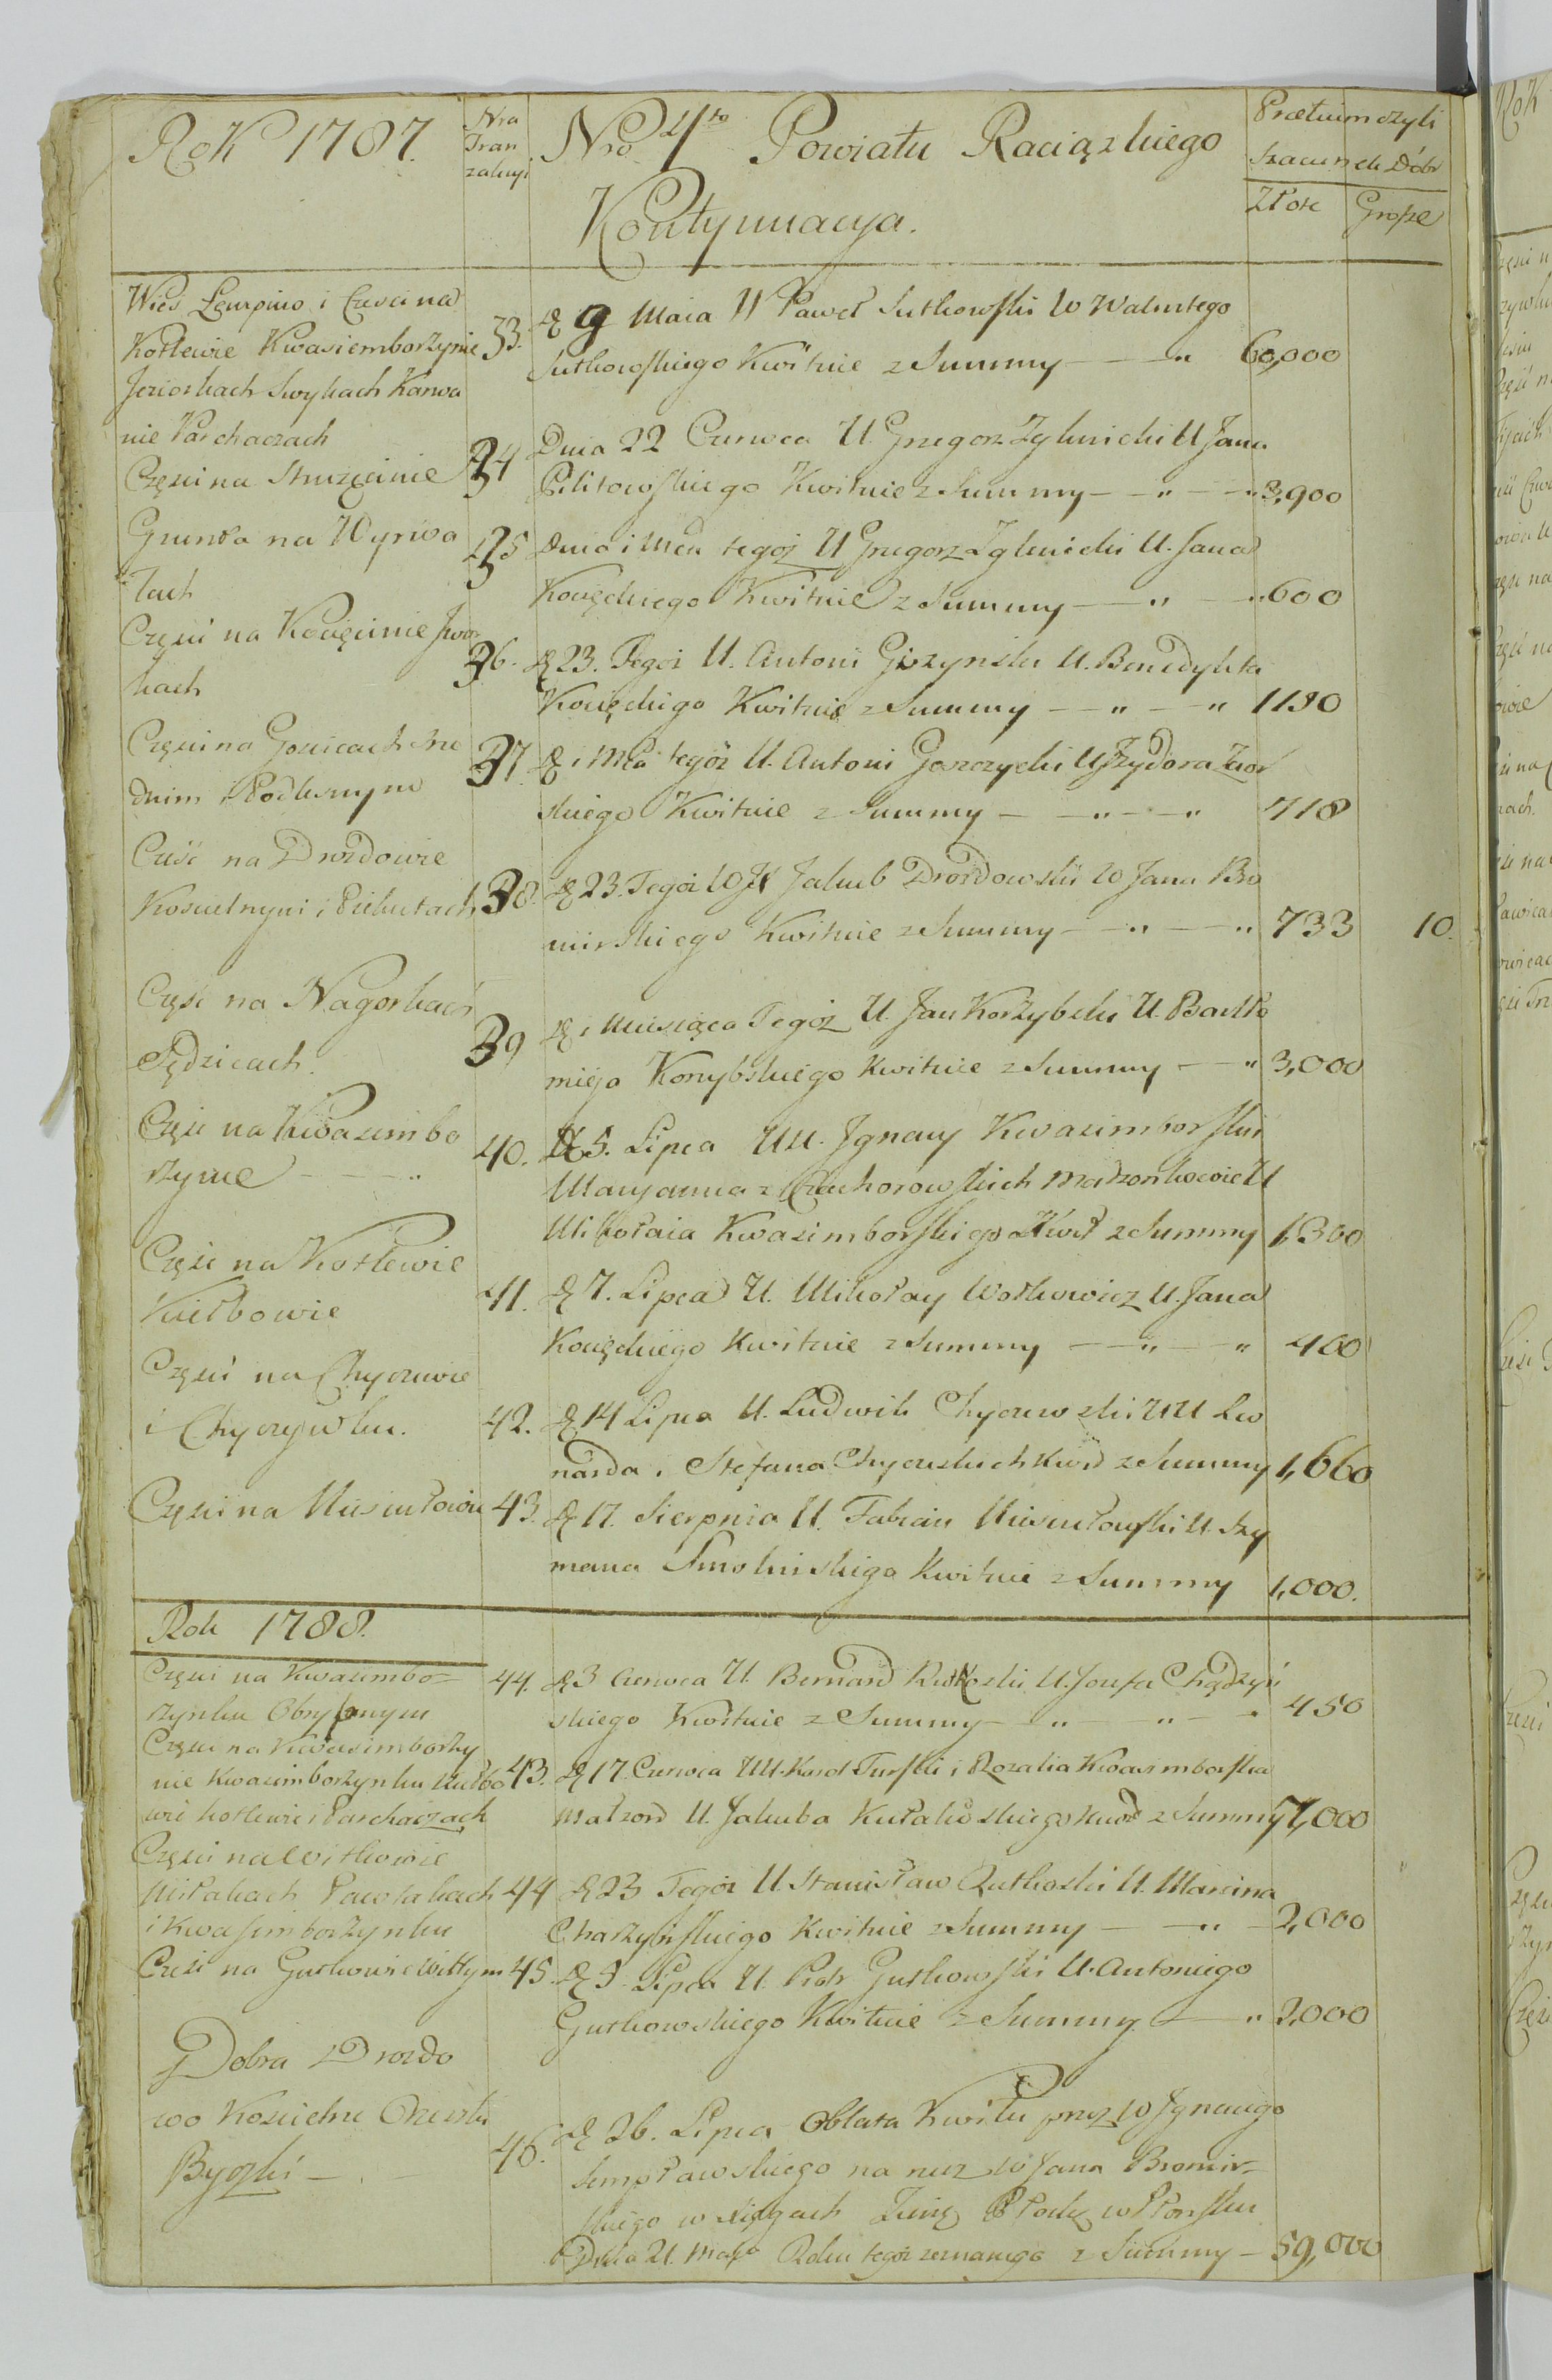 Rok 1787.
Nra
Tran
zakcyi
Nro 4to Powiatu Raciązkiego
Kontynuacya.
Pretium czyli
Szacunek Dóbr
Złote
Grosze
Wieś i Częsci na
Kotlewie Kwasiemborzynie
Jeziorkach Karwa
nie Parchaczach
33.
D 9 Maia W Paweł Sutkowski W Walentego
Sutkowskiego Kwituie z Summy — " 60,000
Częsci na Struzęcinie
34
Dnia 22 Czerwca U. Grzegorz Zglinicki U Jana
Pilitowskiego Kwituie z Summy — " — " 3,900
Grunta na Wyrwa
łach
35
Dnia i Mca tegoż U Grzegorz Zglinicki U. Jana
Kocięckiego Kwituie z Summy — " — " 600
Częsci na Kocięcinie
kach
36.
D 23. Tegoż U. Antoni Giżynski U. Benedykta
Kocięckigo Kwituie z Summy — " — " 1180
Częsci na Gosicach Sre
dnim i Podlesnym
37.
D i Mca tegoż U. Antoni Gorczycki U Izydora
skiego Kwituie z Summy — " — " 718
Częśc na Drozdowie
Koscielnym i Piekutach
38.
D 23. Tegoż W Jakub Drozdowski W Jana Bro
mirskiego Kwituie z Summy — " — " 733 10.
Częśc na Nagorkach
Sędzicach.
39
D i Miesiąca Tegoż U. Jan Korzybski U. Bartło
mieja Korzybskiego Kwituie z Summy — " 3,000
Częśc na Kwasimbo
rzynie — "
40.
D 5. Lipca UU. Jgnacy Kwasimborski
Maryanna z Ciachorowskich Małzonkowie U
Mikołaia Kwasimborskiego Kwit z Summy 1,300
Częśc na Kotlewie
Kiełbowie
41.
D 7. Lipca U. Mikołay Wołkowicz U. Jana
Kocięckiego Kwituie z Summy — " — " 400
Częsci na Chyczewie
i Chyczywku.
42.
D 14 Lipca U. Ludwik Chyczewski UU Leo
narda i Stefana Chyczeskich Kwit z Summy 1,660
Częsci na Miszułowie
43.
D 17. Sierpnia U. Fabian U. Szy
mana Smolinskigo Kwituie z Summy 1,000.
Rok 1788.
Częsci na Kwasimbo-
rzynku Obrysnym
44.
D 3 Czerwca U. Bernard U. Jozefa Chądzyń
skiego Kwituie z Summy — " — " — 450
Częsci na Kwasimborzy
nie Kwasimborzynku Kiełbo
wie Kotlewie i Parchaczach
43.
D 17. Czerwca UU. Karol Turski i Rozalia Kwasimborska
Małzon U. Jakuba Kułakoskiego Kwit z Summy 7,000
Częsci na Witkowie
Miłakach Pawłakach
i Kwasimborzynku
44
D 23 Tegoż U. Stanisław Rutkoski U. Marcina
Charzyńskiego Kwituie z Summy — " — 2,000
Częśc na Gutkowie Wittym
45.
D 9. Lipca U. Piotr Gutkowski U. Antoniego
Gutkowskiego Kwituie z Summy — " 2,000
Dobra Drozdo
wo Koscielne
46.
D 26. Lipca Oblata Kwitu przez W Jgnacego
Sempławskiego na rzecz W Jana Bromir-
skiego w Xięgach Płock w Płonsku
Dnia 21. Maja Roku tegoż zeznanego z Summy — 59,000